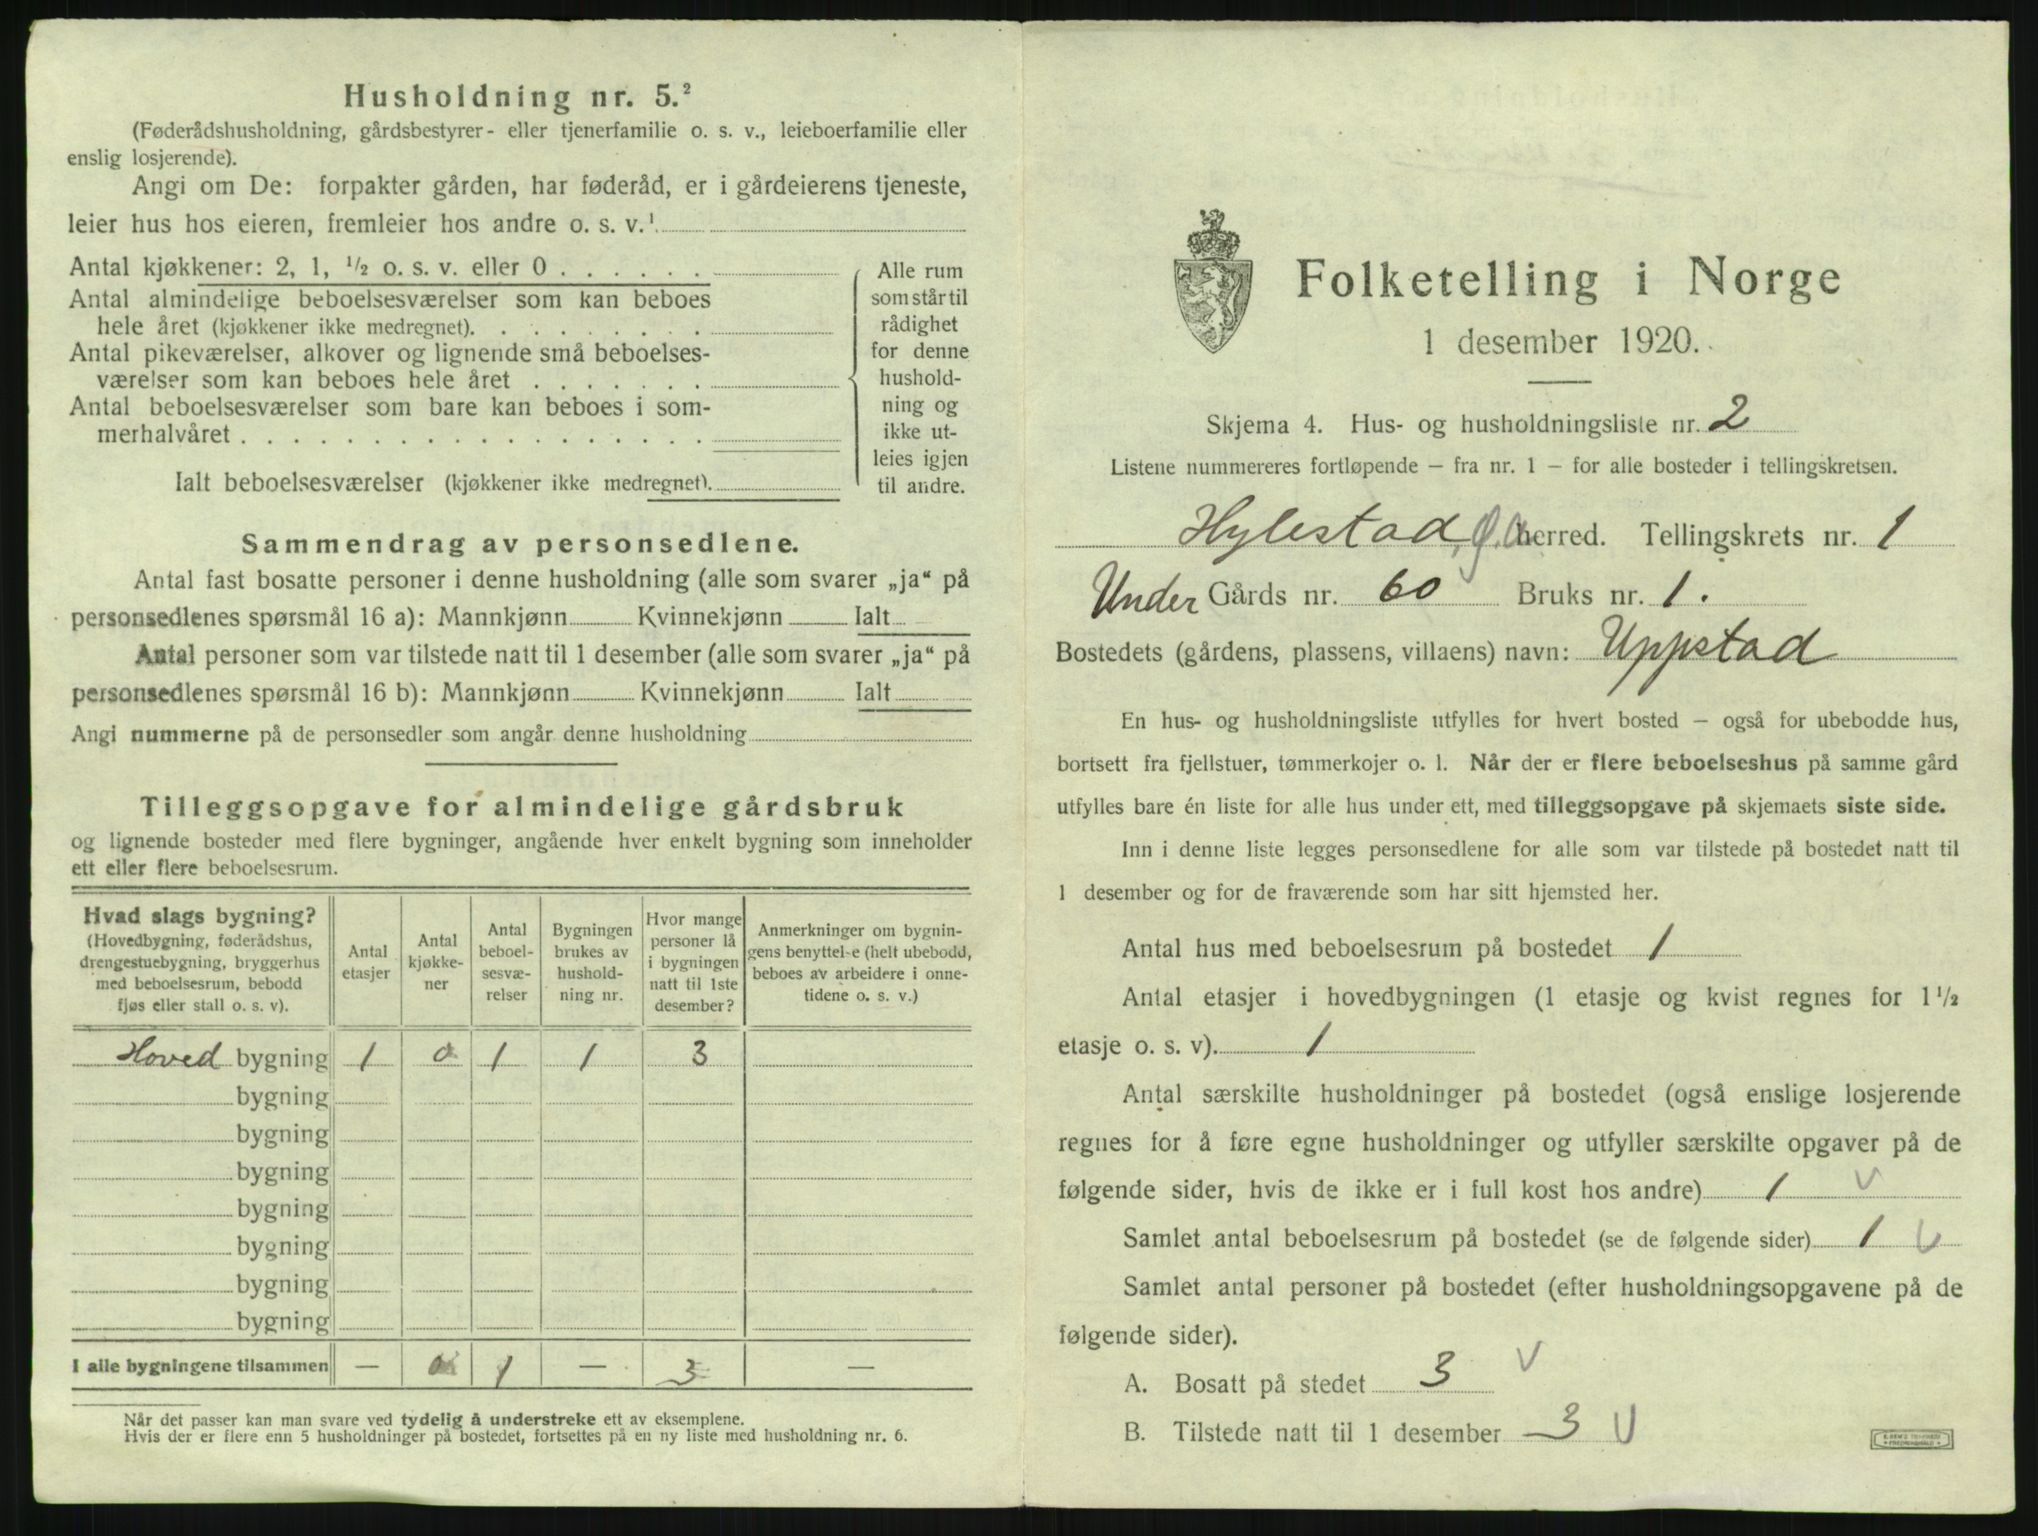 Husholdning nr. 5.²
(Føderådshusholdning, gårdsbestyrer- eller tjenerfamilie o. s. v., leieboerfamilie eller
enslig losjerende).
Angi om De: forpakter gården, har føderåd, er i gårdeierens tjeneste,
leier hus hos eieren, fremleier hos andre o. s. v.¹
Antal kjøkkener: 2, 1, ½ o. s. v. eller 0 . . . . . .
Antal almindelige beboelsesværelser som kan beboes
hele året (kjøkkener ikke medregnet). . . . . . . . .
Antal pikeværelser, alkover og lignende små beboelses-
værelser som kan beboes hele året . . . . . . .
Antal beboelsesværelser som bare kan beboes i som-
merhalvåret . . . . . . . . . . . . . . . . . .
Ialt beboelsesværelser (kjøkkener ikke medregnet).
Alle rum
som står til
rådighet
for denne
hushold-
ning og
ikke ut-
leies igjen
til andre.
Sammendrag av personsedlene.
Antal fast bosatte personer i denne husholdning (alle som svarer „ja“ på
personsedlenes spørsmål 16 a): Mannkjønn Kvinnekjønn Ialt
Antal personer som var tilstede natt til 1 desember (alle som svarer „ja“ på
personsedlenes spørsmål 16 b): Mannkjønn Kvinnekjønn Ialt
Angi nummerne på de personsedler som angår denne husholdning
Tilleggsopgave for almindelige gårdsbruk
og lignende bosteder med flere bygninger, angående hver enkelt bygning som inneholder
ett eller flere beboelsesrum.
Hvad slags bygning?
(Hovedbygning, føderådshus,
drengestuebygning, bryggerhus
med beboelsesrum, bebodd
fjøs eller stall o. s. v).
Antal
etasjer
Antal
kjøkke-
ner
Antal
beboel-
sesvæ-
relser
Bygningen
brukes av
hushold-
ning nr.
Hvor mange
personer lå
i bygningen
natt til 1ste
desember?
Anmerkninger om bygnin-
gens benyttelse (helt ubebodd,
beboes av arbeidere i onne-
tidene o. s. v.)
Hoved bygning 1 0 1 1 3
bygning
bygning
bygning
bygning
bygning
bygning
bygning
I alle bygningene tilsammen — 0 1 — 3 —
Når det passer kan man svare ved tydelig å understreke ett av eksemplene.
Hvis der er flere enn 5 husholdninger på bostedet, fortsettes på en ny liste med husholdning nr. 6.
Folketelling i Norge
1 desember 1920.
Skjema 4. Hus- og husholdningsliste nr. 2
Listene nummereres fortløpende – fra nr. 1 – for alle bosteder i tellingskretsen.
Hylestad herred. Tellingskrets nr. 1
Under Gårds nr. 60 Bruks nr. 1.
Bostedets (gårdens, plassens, villaens) navn: Uppstad
En hus- og husholdningsliste utfylles for hvert bosted – også for ubebodde hus,
bortsett fra fjellstuer, tømmerkojer o. l. Når der er flere beboelseshus på samme gård
utfylles bare én liste for alle hus under ett, med tilleggsopgave på skjemaets siste side.
Inn i denne liste legges personsedlene for alle som var tilstede på bostedet natt til
1 desember og for de fraværende som har sitt hjemsted her.
Antal hus med beboelsesrum på bostedet 1
Antal etasjer i hovedbygningen (1 etasje og kvist regnes for 1½
etasje o. s. v). 1
Antal særskilte husholdninger på bostedet (også enslige losjerende
regnes for å føre egne husholdninger og utfyller særskilte opgaver på de
følgende sider, hvis de ikke er i full kost hos andre) 1 v
Samlet antal beboelsesrum på bostedet (se de følgende sider) 1 v
Samlet antal personer på bostedet (efter husholdningsopgavene på de
følgende sider).
A. Bosatt på stedet 3 v
B. Tilstede natt til 1 desember 3 v